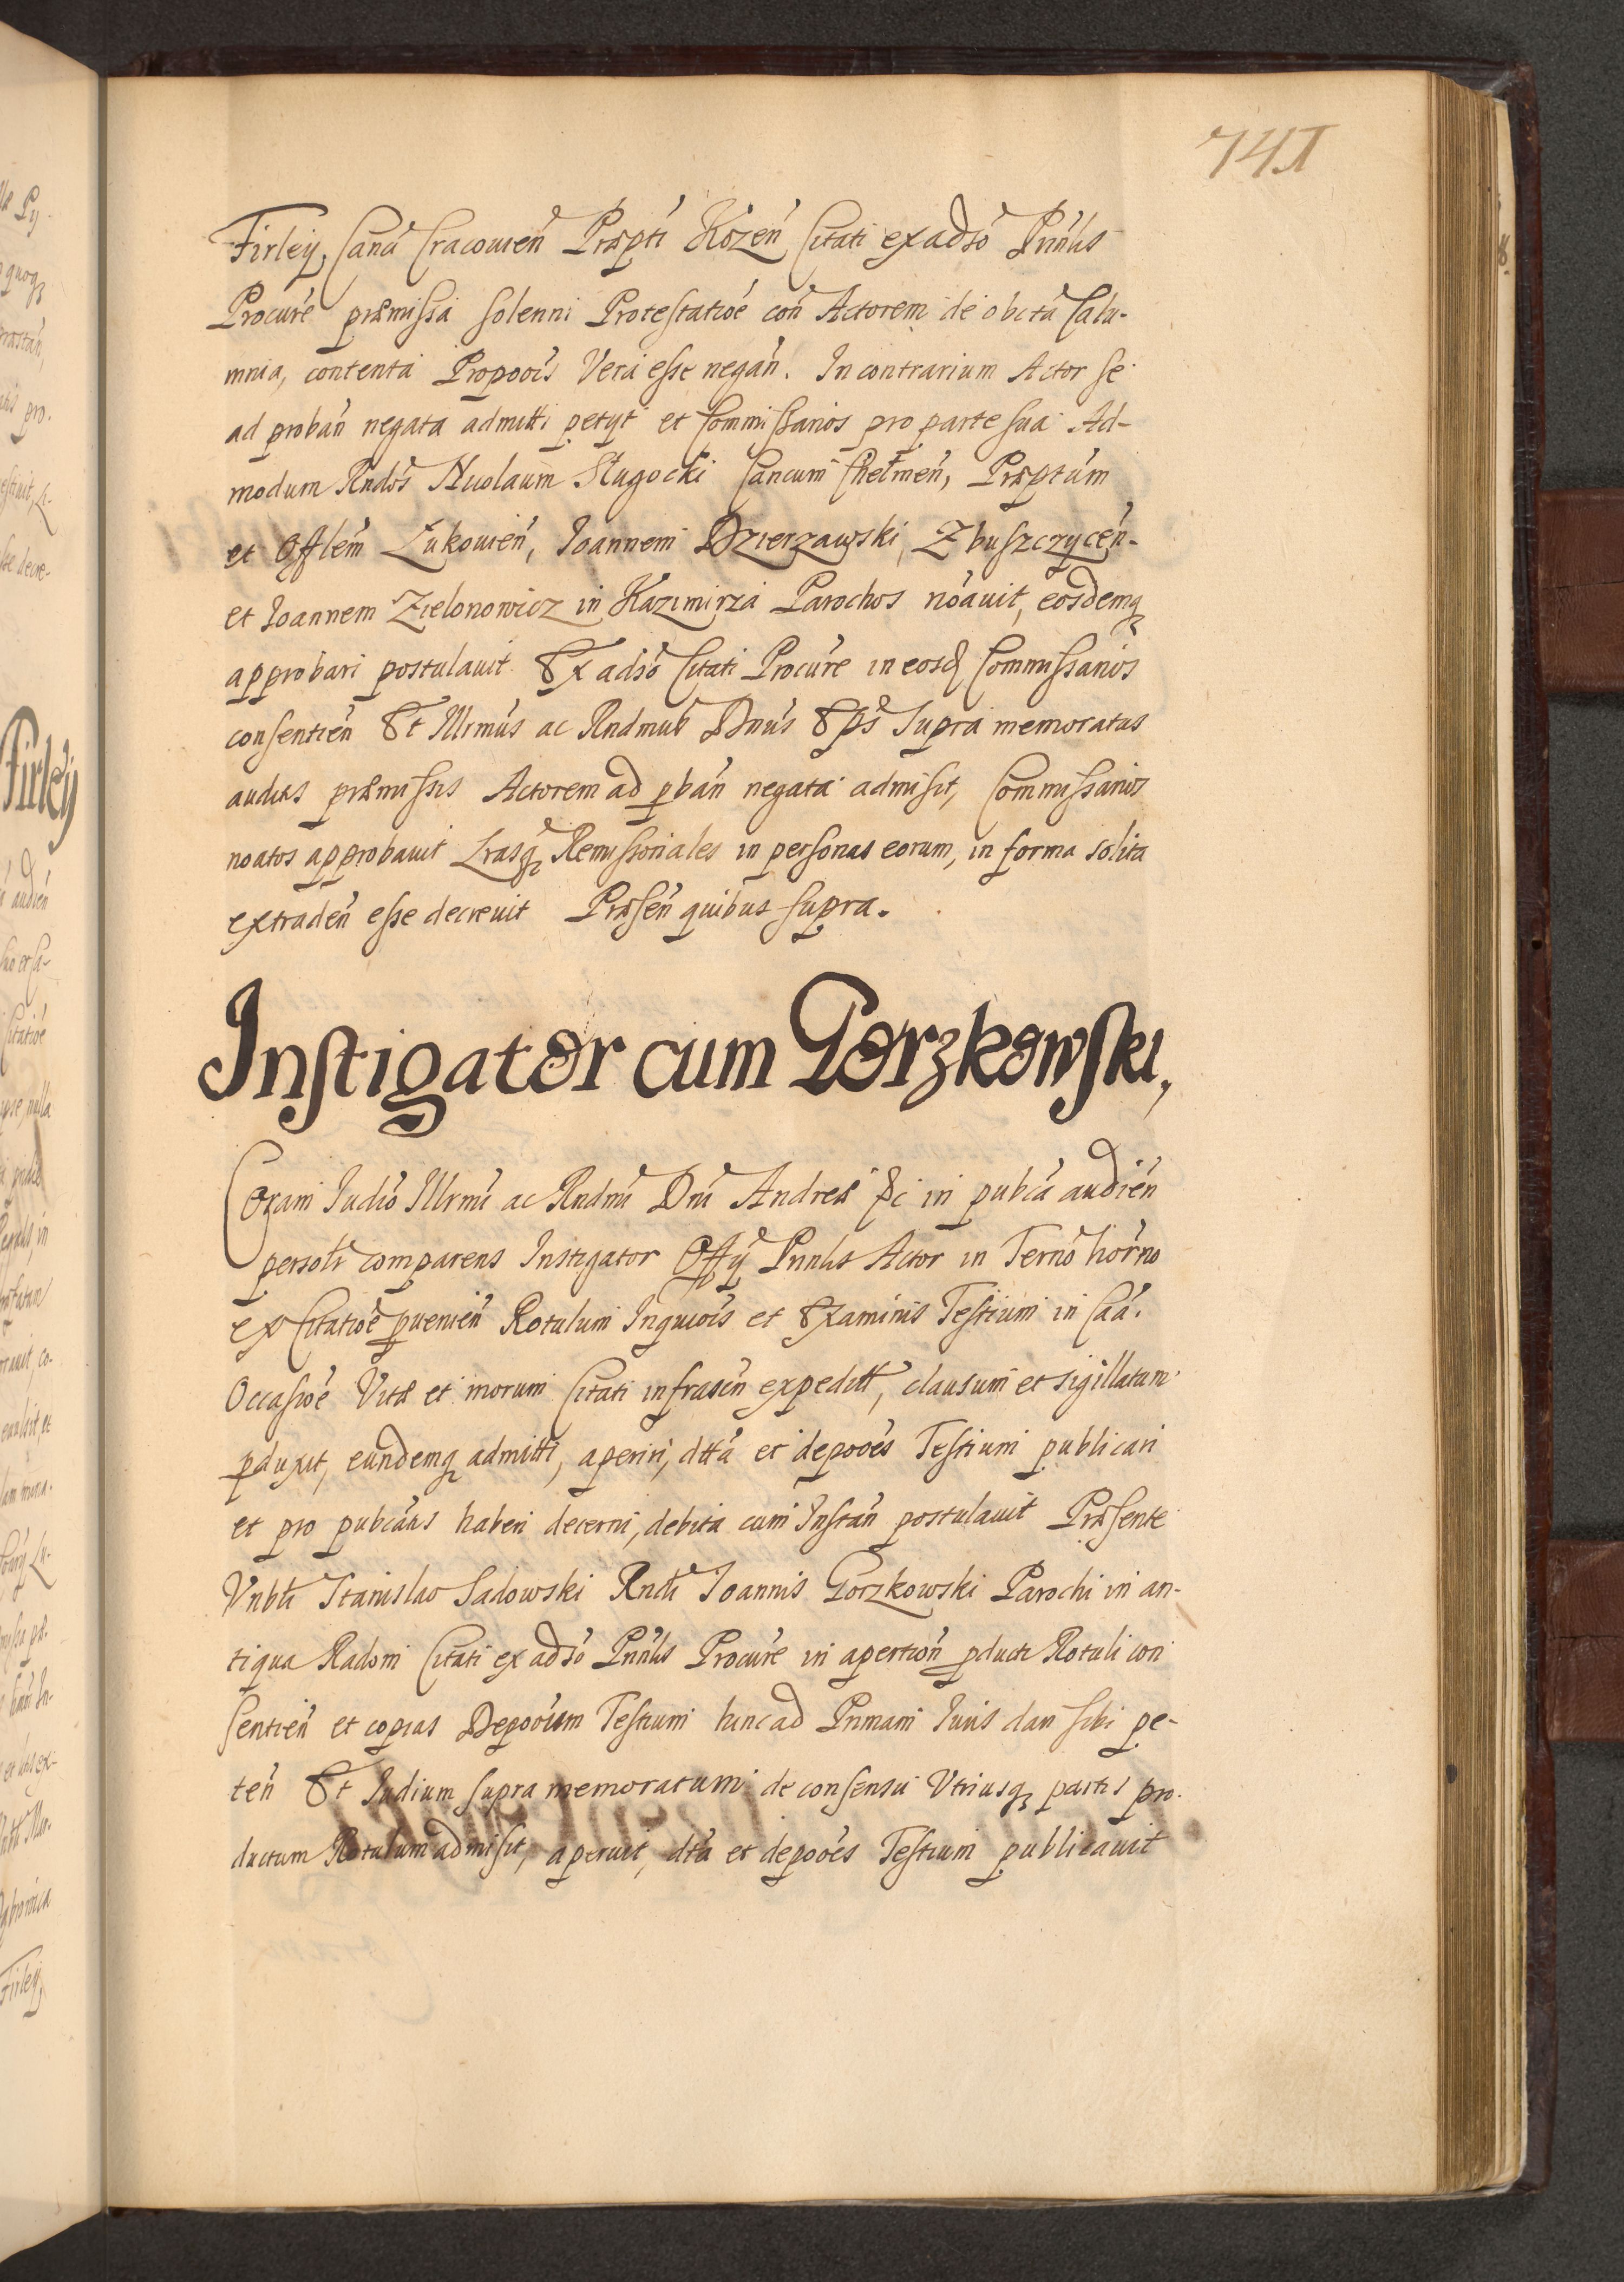 741
Firley, Canci Cracouien̄ Præpti Kozen̄ Citati ex adső Pn̄lis
Procure præmissa solenni Protestatioe con Actorem de obicta Calu-
mnia, contenta Propoois Vera esse negan̄. In contrarium Actor se
ad proban̄ negata admitti petyt et Commissarios pro parte sua Ad-
modum Rndos Nicolaum Stugocki Cancum Chelmen̄, Præptum
et Offlem Łukouien̄, Joannem Dzierzawski, Zbuszczycen̄-
et Joannem Zielonowicz in Kazimirza Parochos noauit, eosdemq
approbari postulauit. Ex adso Citati Procure in eosd Commissarios
consentien̄ Et Illrmus ac Rndmus Dnus Eps supra memoratus
auditis præmissis Actorem ad pban̄ negata admisit, Commissarios
noatos approbauit Lrasq Remissoriales in personas eorum, in forma solita
extraden̄ esse decreuit Præsen̄ quibus supra.
Instigator cum Gorzkowski,
Coram Iudio Illrmi ac Rndmi Dni Andreæ &c in pubca audien̄
persolr comparens Instigator Offy Pnnlis Actor in Terno horno
ex Citatioe puenien̄ Rotulum Inquiois et Examinis Testium in Caa.
Occasioe Vitæ et morum Citati infrascn expeditt, clausum et sigillatum
pduxit, eundemq admitti, aperiri, dtta et depooes Testium publicari
et pro pubcatis haberi decerni, debita cum Instan̄ postulauit Præsente
Vnbli Stanislao Sadowski Rndi Joannis Gorzkowski Parochi in an-
tiqua Radom Citati ex adso Pnnlis Procure in apertion̄ pducti Rotuli con
sentien̄ et copias Depooium Testium hinc ad Primam Iuris dari sibi pe-
ten̄ Et Iudium supra memoratum de consensu Vtriusq partis pro-
ductum Rotulum admisit, aperuit, dta et depooes Testium publicauit